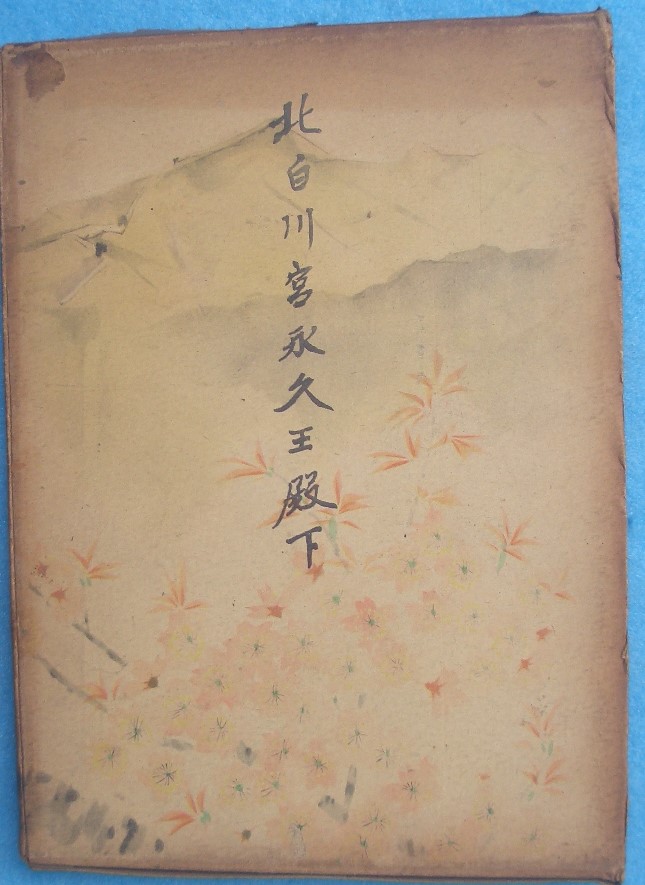 北白川宮永久王殿下